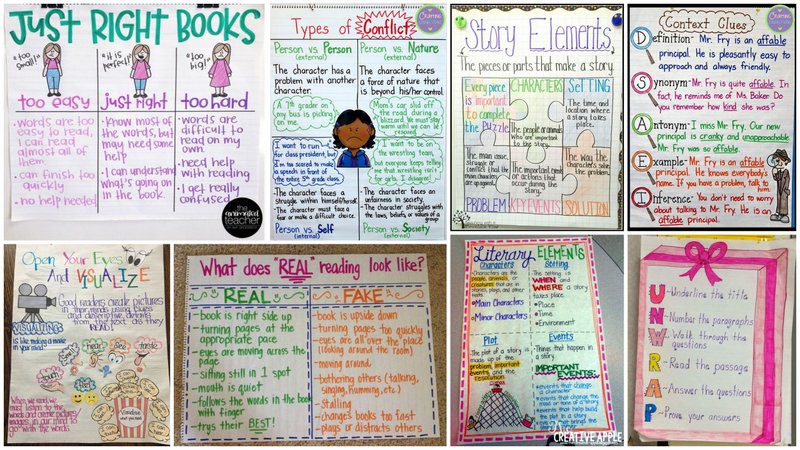 JUST RIGHT BOOKS
"too small!"
"it is perfect!"
"too big!"
too easy
•Words are too easy to read, I can read almost all of them.
•can finish too quickly
•no help needed
just right
•Know most of the words, but may need some help
•I can understand what's going on in the book.
too hard
•words are difficult to read on my own.
•need help with reading
•I get really confused
the animated teacher
Types of Conflict
Person vs. Person
(external)
The character has a problem with another character.
A 7th grader on my bus is picking on me.
Person vs. Nature
(external)
The character faces a force of nature that is beyond his/her control.
Mom's car slid off the road during a blizzard. We must stay warm until we can be rescued.
I want to run for class president, but I'm too scared to make a speech in front of the entire 5th grade class.
The character faces a struggle within himself/herself.
The character must face a fear or make a difficult choice.
Person vs. Self
(internal)
I want to be on the wrestling team, but everyone keeps telling me that wrestling isn't for girls. I disagree!
The character faces an unfairness in society.
The character struggles with the laws, beliefs, or values of a group
Person vs. Society
(external)
Story Elements
The pieces or parts that make a story.
Every piece is important to complete the puzzle.
CHARACTERS
The people or animals who are important to the story.
SETTING
The time and location where a story takes place.
The main issue, struggle or conflict that the main characters are up against.
PROBLEM
The important events or actions that occur during the story.
KEY EVENTS
The way the characters solve the problem.
SOLUTION
Context Clues
Definition- Mr. Fry is an affable principal. He is pleasantly easy to approach and always friendly.
Synonym- Mr. Fry is quite affable. In fact, he reminds me of Ms. Baker. Do you remember how kind she was?
Antonym- I miss Mr. Fry. Our new principal is cranky and unapproachable. Mr. Fry was so affable.
Example- Mr. Fry is an affable principal. He knows everybody's name. If you have a problem, talk to him.
Inference- You don't need to worry about talking to Mr. Fry. He is an affable principal.
Open Your Eyes
And VISUALIZE
Good readers create pictures in their minds using clues and descriptive details from the text as they READ!
VISUALIZING
is like making a movie in your mind!
When we read, we must listen to the words and create pictures/images in our mind to go with the words.
What does "REAL" reading look like?
REAL
-book is right side up
-turning pages at the appropriate pace
-eyes are moving across the page
-sitting still in 1 spot
-mouth is quiet
-follows the words in the book with finger
-trys their BEST!
FAKE
-book is upside down
-turning pages too quickly
-eyes are all over the place (looking around the room)
-moving around
-bothering others (talking, singing, humming, etc.)
-Stalling
-changes books too fast
-plays or distracts others
Literary ELEMENTS
Characters
•Characters are the people, animals, or creatures that are in stories, plays, and other works.
•Main Characters
•Minor Characters
Setting
•The setting is WHEN and WHERE a story takes place.
•Place
•Time
•Environment
Plot
The plot of a story is made up of the problem, important events, and the resolution
Events
•Things that happen in a story.
IMPORTANT EVENTS:
•events that change a character
•events that change the mood or tone of a story
•events that help build the plot in a story
CREATIVE APPLE
UNWRAP
-Underline the title
-Number the paragraphs
-Walk through the questions
-Read the passage
-Answer the questions
-Prove your answers